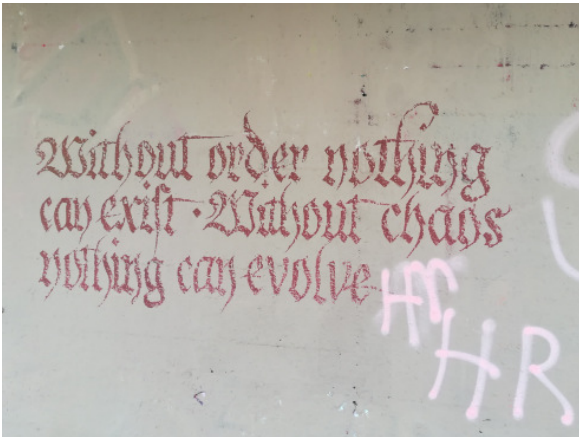 Without order nothing
can exist · Without chaos
nothing can evolve
Hm
HR